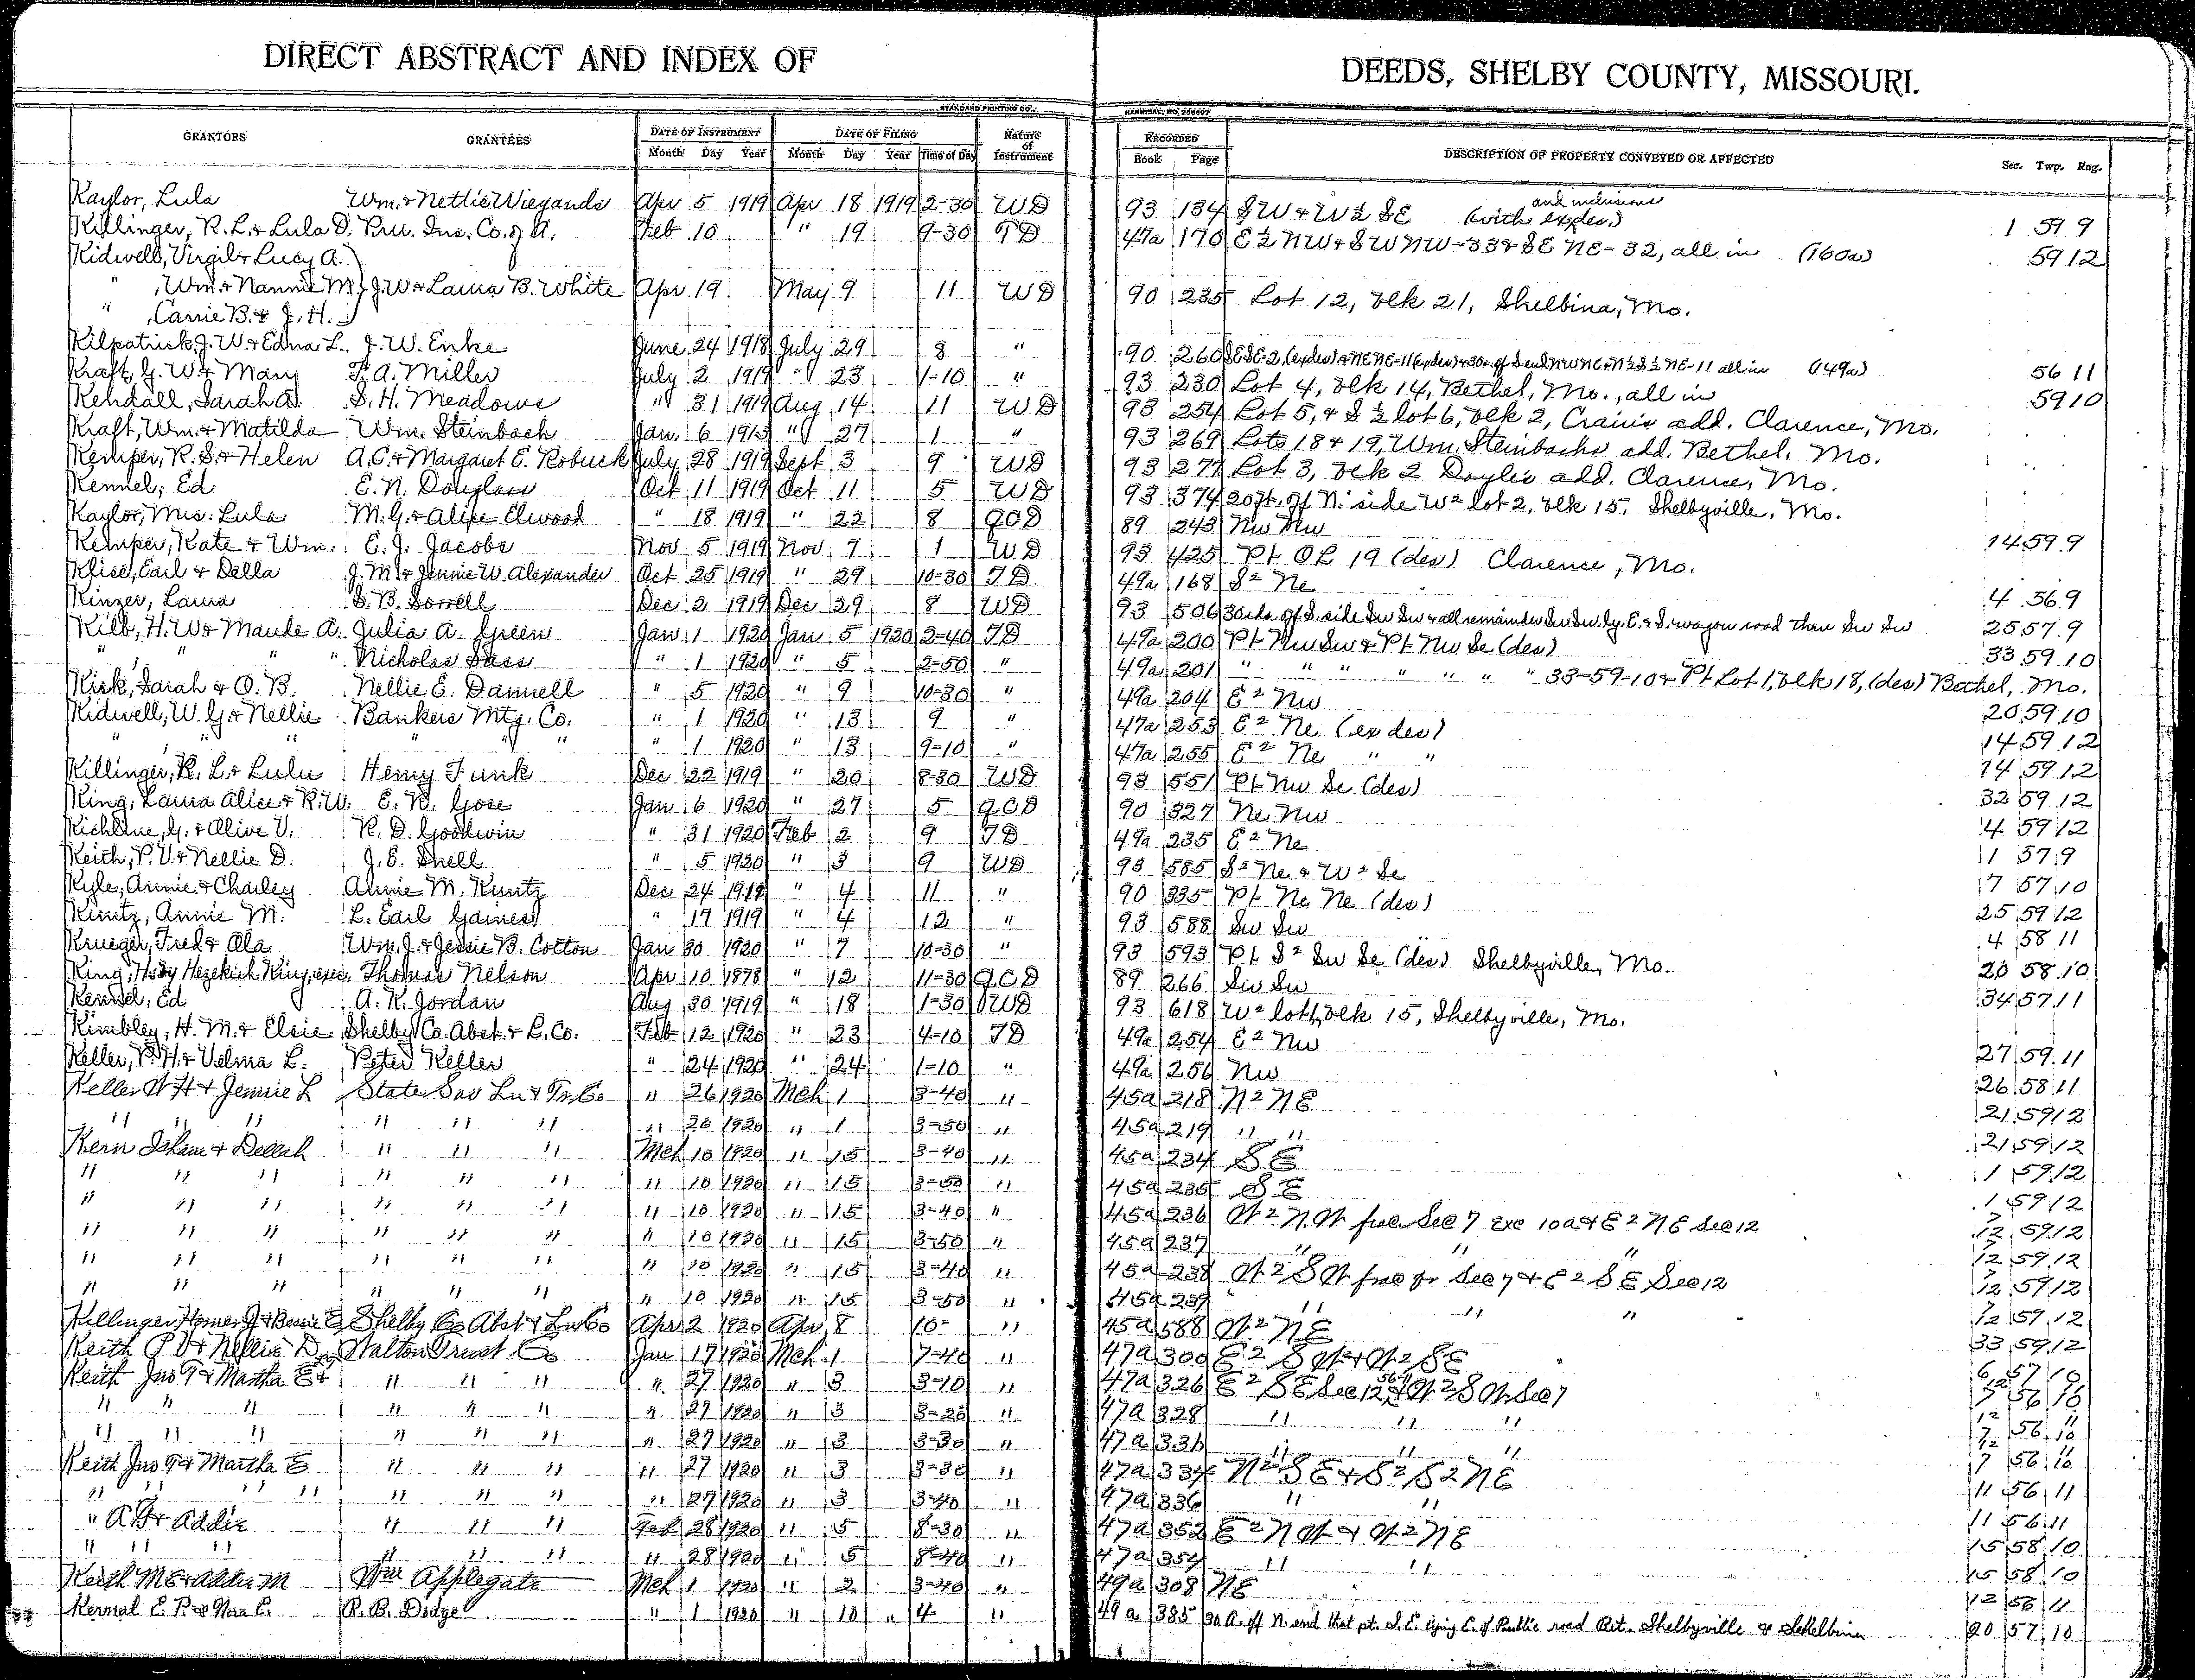 DIRECT ABSTRACT AND INDEX OF DEEDS, SHELBY COUNTY, MISSOURI.
STANDARD PRINTING CO., HANNIBAL, NO.
GRANTORS GRANTEES DATE OF INSTRUMENT DATE OF FILING Nature of Instrument RECORDED DESCRIPTION OF PROPERTY CONVEYED OR AFFECTED Sec. Twp. Rng.
Month Day Year Month Day Year Time of Day Book Page
Kaylor, Lula Wm. & Nettie Wiegands Apr 5 1919 Apr 18 1919 2-30 WD 93 134 SW & W½ SE (with ex des) and inclusions 1 59 9
Killinger, R. L. & Lula D. Pru. Ins. Co. of A. Feb 10 " 19 9-30 TD 47a 170 E½ NW & SW NW-33 & SE NE-32, all in (160a) 59 12
Kidwell, Virgil & Lucy A.
" , Wm. & Nannie M. J. W. & Laura B. White Apr 19 May 9 11 WD 90 235 Lot 12, blk 21, Shelbina, Mo.
" , Carrie B. & J. H.
Kilpatrick, J. W. & Edna L. J. W. Enke June 24 1918 July 29 8 " 90 260 SE SE-2, (ex des) & NE NE-11 (ex des) & 30a off S end NW NE & N½ S½ NE-11 all in (149a) 56 11
Kraft, G. W. & Mary F. A. Miller July 2 1919 " 23 1-10 " 93 230 Lot 4, blk 14, Bethel, Mo., all in 59 10
Kendall, Sarah A. S. H. Meadows " 31 1919 Aug 14 11 WD 93 254 Lot 5, & S½ lot 6, blk 2, Crains add. Clarence, Mo.
Kraft, Wm. & Matilda Wm. Steinbach Jan. 6 1913 " 27 1 " 93 269 Lots 18 & 19, Wm. Steinbachs add. Bethel, Mo.
Kemper, R. S. & Helen A. C. & Margaret E. Robuck July 28 1919 Sept 3 9 WD 93 277 Lot 3, blk 2 Doyles add. Clarence, Mo.
Kennel, Ed E. N. Douglass Oct 11 1919 Oct 11 5 WD 93 374 20 ft. off N. side W² lot 2, blk 15, Shelbyville, Mo.
Kaylor, Mrs. Lula M. G. & Alice Elwood " 18 1919 " 22 8 QCD 89 243 Nw Nw 14 59 9
Kemper, Kate & Wm. E. J. Jacobs Nov 5 1919 Nov 7 1 WD 93 425 Pt OL 19 (des) Clarence, Mo.
Klise, Earl & Della J. M. & Jennie W. Alexander Oct 25 1919 " 29 10-30 TD 49a 168 S² Ne 4 56 9
Kinzer, Laura S. B. Sorrell Dec 2 1919 Dec 29 8 WD 93 506 30 off S. side Sw Sw & all remainder Sw Sw ly. E. & S. wagon road thru Sw Sw 25 57 9
Kilb, H. W. & Maude A. Julia A. Green Jan 1 1920 Jan 5 1920 2-40 TD 49a 200 Pt Nw Sw & Pt Nw Se (des) 33 59 10
" " " " Nicholas Sass " 1 1920 " 5 2-50 " 49a 201 " " " " " " " 33-59-10 & Pt Lot 1, blk 18, (des) Bethel, Mo.
Kirk, Sarah & O. B. Nellie E. Dannell " 5 1920 " 9 10-30 " 49a 204 E² Nw 20 59 10
Kidwell, W. G. & Nellie Bankers Mtg. Co. " 1 1920 " 13 9 " 47a 253 E² Ne (ex des) 14 59 12
" " " " " " 1 1920 " 13 9-10 " 47a 255 E² Ne " " 14 59 12
Killinger, R. L. & Lulu Henry Funk Dec 22 1919 " 20 8-30 WD 93 551 Pt Nw Se (des) 32 59 12
King, Laura Alice & R. W. E. W. Gose Jan 6 1920 " 27 5 QCD 90 327 Ne Nw 4 59 12
Kichline, G. & Alive V. R. D. Goodwin " 31 1920 Feb 2 9 TD 49a 235 E² Ne 1 57 9
Keith, P. V. & Nellie D. J. E. Snell " 5 1920 " 3 9 WD 93 585 S² Ne & W² Se 7 57 10
Kyle, Annie & Charley Annie M. Kuntz Dec 24 1919 " 4 11 " 90 335 Pt Ne Ne (des) 25 59 12
Kuntz, Annie M. L. Earl Gaines " 17 1919 " 4 12 " 93 588 Sw Sw 4 58 11
Krueger, Fred & Ola Wm. J. & Jessie B. Cotton Jan 30 1920 " 7 10-30 " 93 593 Pt S² Sw Se (des) Shelbyville, Mo. 20 58 10
King, H. by Hezekiah King, exec. Thomas Nelson Apr 10 1878 " 12 11-30 QCD 89 266 Sw Sw 34 57 11
Kennel, Ed A. K. Jordan Aug 30 1919 " 18 1-30 WD 93 618 W² lot 1, blk 15, Shelbyville, Mo.
Kimbley, H. M. & Elsie Shelby Co. Abst. & L. Co. Feb 12 1920 " 23 4-10 TD 49a 254 E² Nw 27 59 11
Keller, P. H. & Velma L. Peter Keller " 24 1920 " 24 1-10 " 49a 256 Nw 26 58 11
Keller W H & Jennie L State Sav Ln & Tr. Co " 26 1920 Mch 1 3-40 " 45a 218 N² NE 21 59 12
" " " " " " " 26 1920 " 1 3-50 " 45a 219 " " 21 59 12
Kern Isham & Dellah " " " Mch 10 1920 " 15 3-40 " 45a 234 SE 1 59 12
" " " " " " " 10 1920 " 15 3-50 " 45a 235 SE 1 59 12
" " " " " " " 10 1920 " 15 3-40 " 45a 236 W² N W frac Sec 7 exc 10a & E² NE Sec 12 7 12 59 12
" " " " " " " 10 1920 " 15 3-50 " 45a 237 " " " 7 12 59 12
" " " " " " " 10 1920 " 15 3-40 " 45a 238 W² S W frac qr Sec 7 & E² SE Sec 12 7 12 59 12
" " " " " " " 10 1920 " 15 3-50 " 45a 239 " " " 7 12 59 12
Killinger Homer J & Bessie E Shelby Co Abst & Ln Co Apr 2 1920 Apr 8 10- " 45a 588 W² NE 33 59 12
Keith P V & Nellie D Walton Trust Co Jan 17 1920 Mch 1 7-40 " 47a 300 E² S W & W² SE 6 57 10
Keith Jno T & Martha E " " " " 27 1920 " 3 3-10 " 47a 326 E² SE Sec 12 56-11 & W² S W Sec 7 12 7 56 10
" " " " " " " 27 1920 " 3 3-20 " 47a 328 " " " 12 7 56 11 10
" " " " " " " 27 1920 " 3 3-30 " 47a 331 " " " 12 7 56 11 10
Keith Jno T & Martha E " " " " 27 1920 " 3 3-30 " 47a 334 N² SE & S² S² NE 11 56 11
" " " " " " " 27 1920 " 3 3-40 " 47a 336 " " 11 56 11
" A B & Addie " " " Feb 28 1920 " 5 8-30 " 47a 352 E² N W & W² NE 15 58 10
" " " " " " " 28 1920 " 5 8-40 " 47a 354 " " 15 58 10
Keith M E & Addie M Wm Applegate Mch 1 1920 " 2 3-40 " 49a 308 NE 12 56 11
Kernal E. P. & Nora E. R. B. Dodge " 1 1920 " 10 4 " 49a 385 30 A. off N. end that pt. S. E. lying E. of Public road Bet. Shelbyville & Shelbina 20 57 10